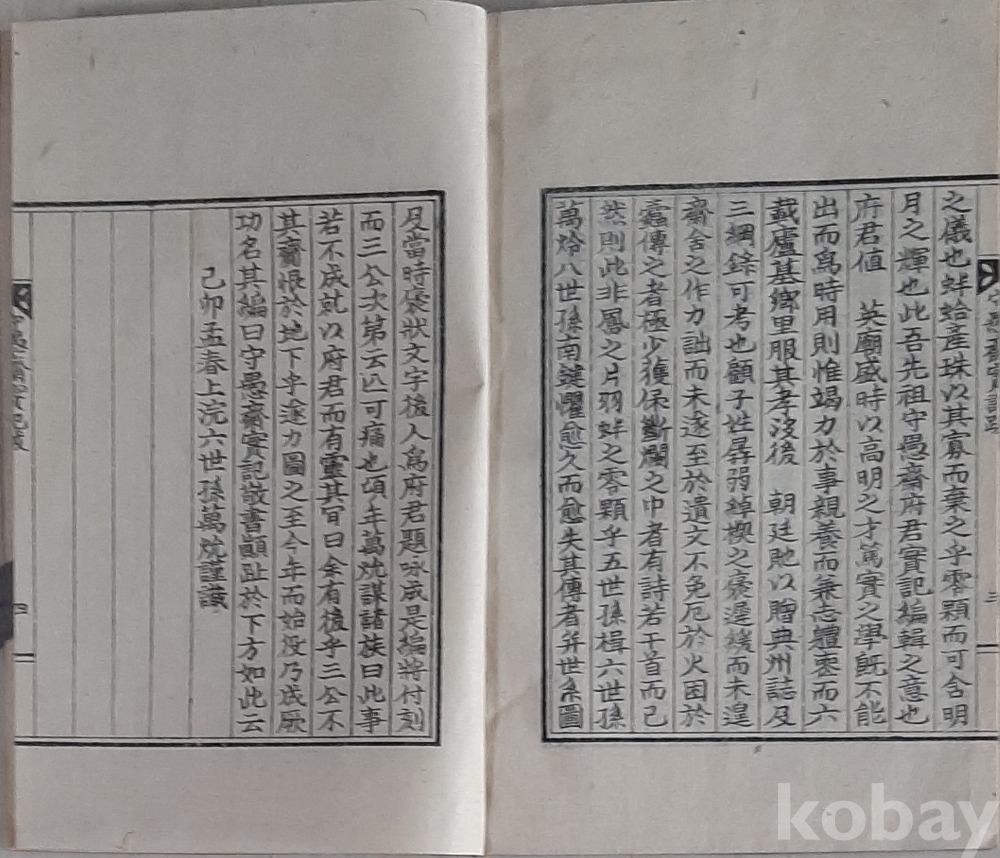 之儀也蚌蛤產珠以其寡而棄之乎零顆而可舍明
月之輝也此吾先祖守愚齋府君實記編輯之意也
府君值 英廟盛時以高明之才篤實之學旣不能
出而爲時用則惟竭力於事親養而兼志軆喪而六
載廬墓鄕里服其孝沒後 朝廷貤以贈典州誌及
三綱錄可考也顧子姓孱弱綽楔之褒遲緩而未遑
齋舍之作力詘而未遂至於遺文不免厄於火困於
蠹傳之者極少獲保斷爛之中者有詩若干首而已
然則此非鳳之片羽蚌之零顆乎五世孫楫六世孫
萬烚八世孫南鍵懼愈久而愈失其傳者并世系圖
及當時褒狀文字後人爲府君題咏成是編將付刻
而三公次第云亡可痛也頃年萬炕謀諸族曰此事
若不成就以府君而有靈其肯曰余有後乎三公不
其齎恨於地下乎遂力圖之至今年而始役乃成厥
功名其編曰守愚齋實記敬書顚趾於下方如此云
己卯孟春上浣六世孫萬炕謹識
三
四
kobay